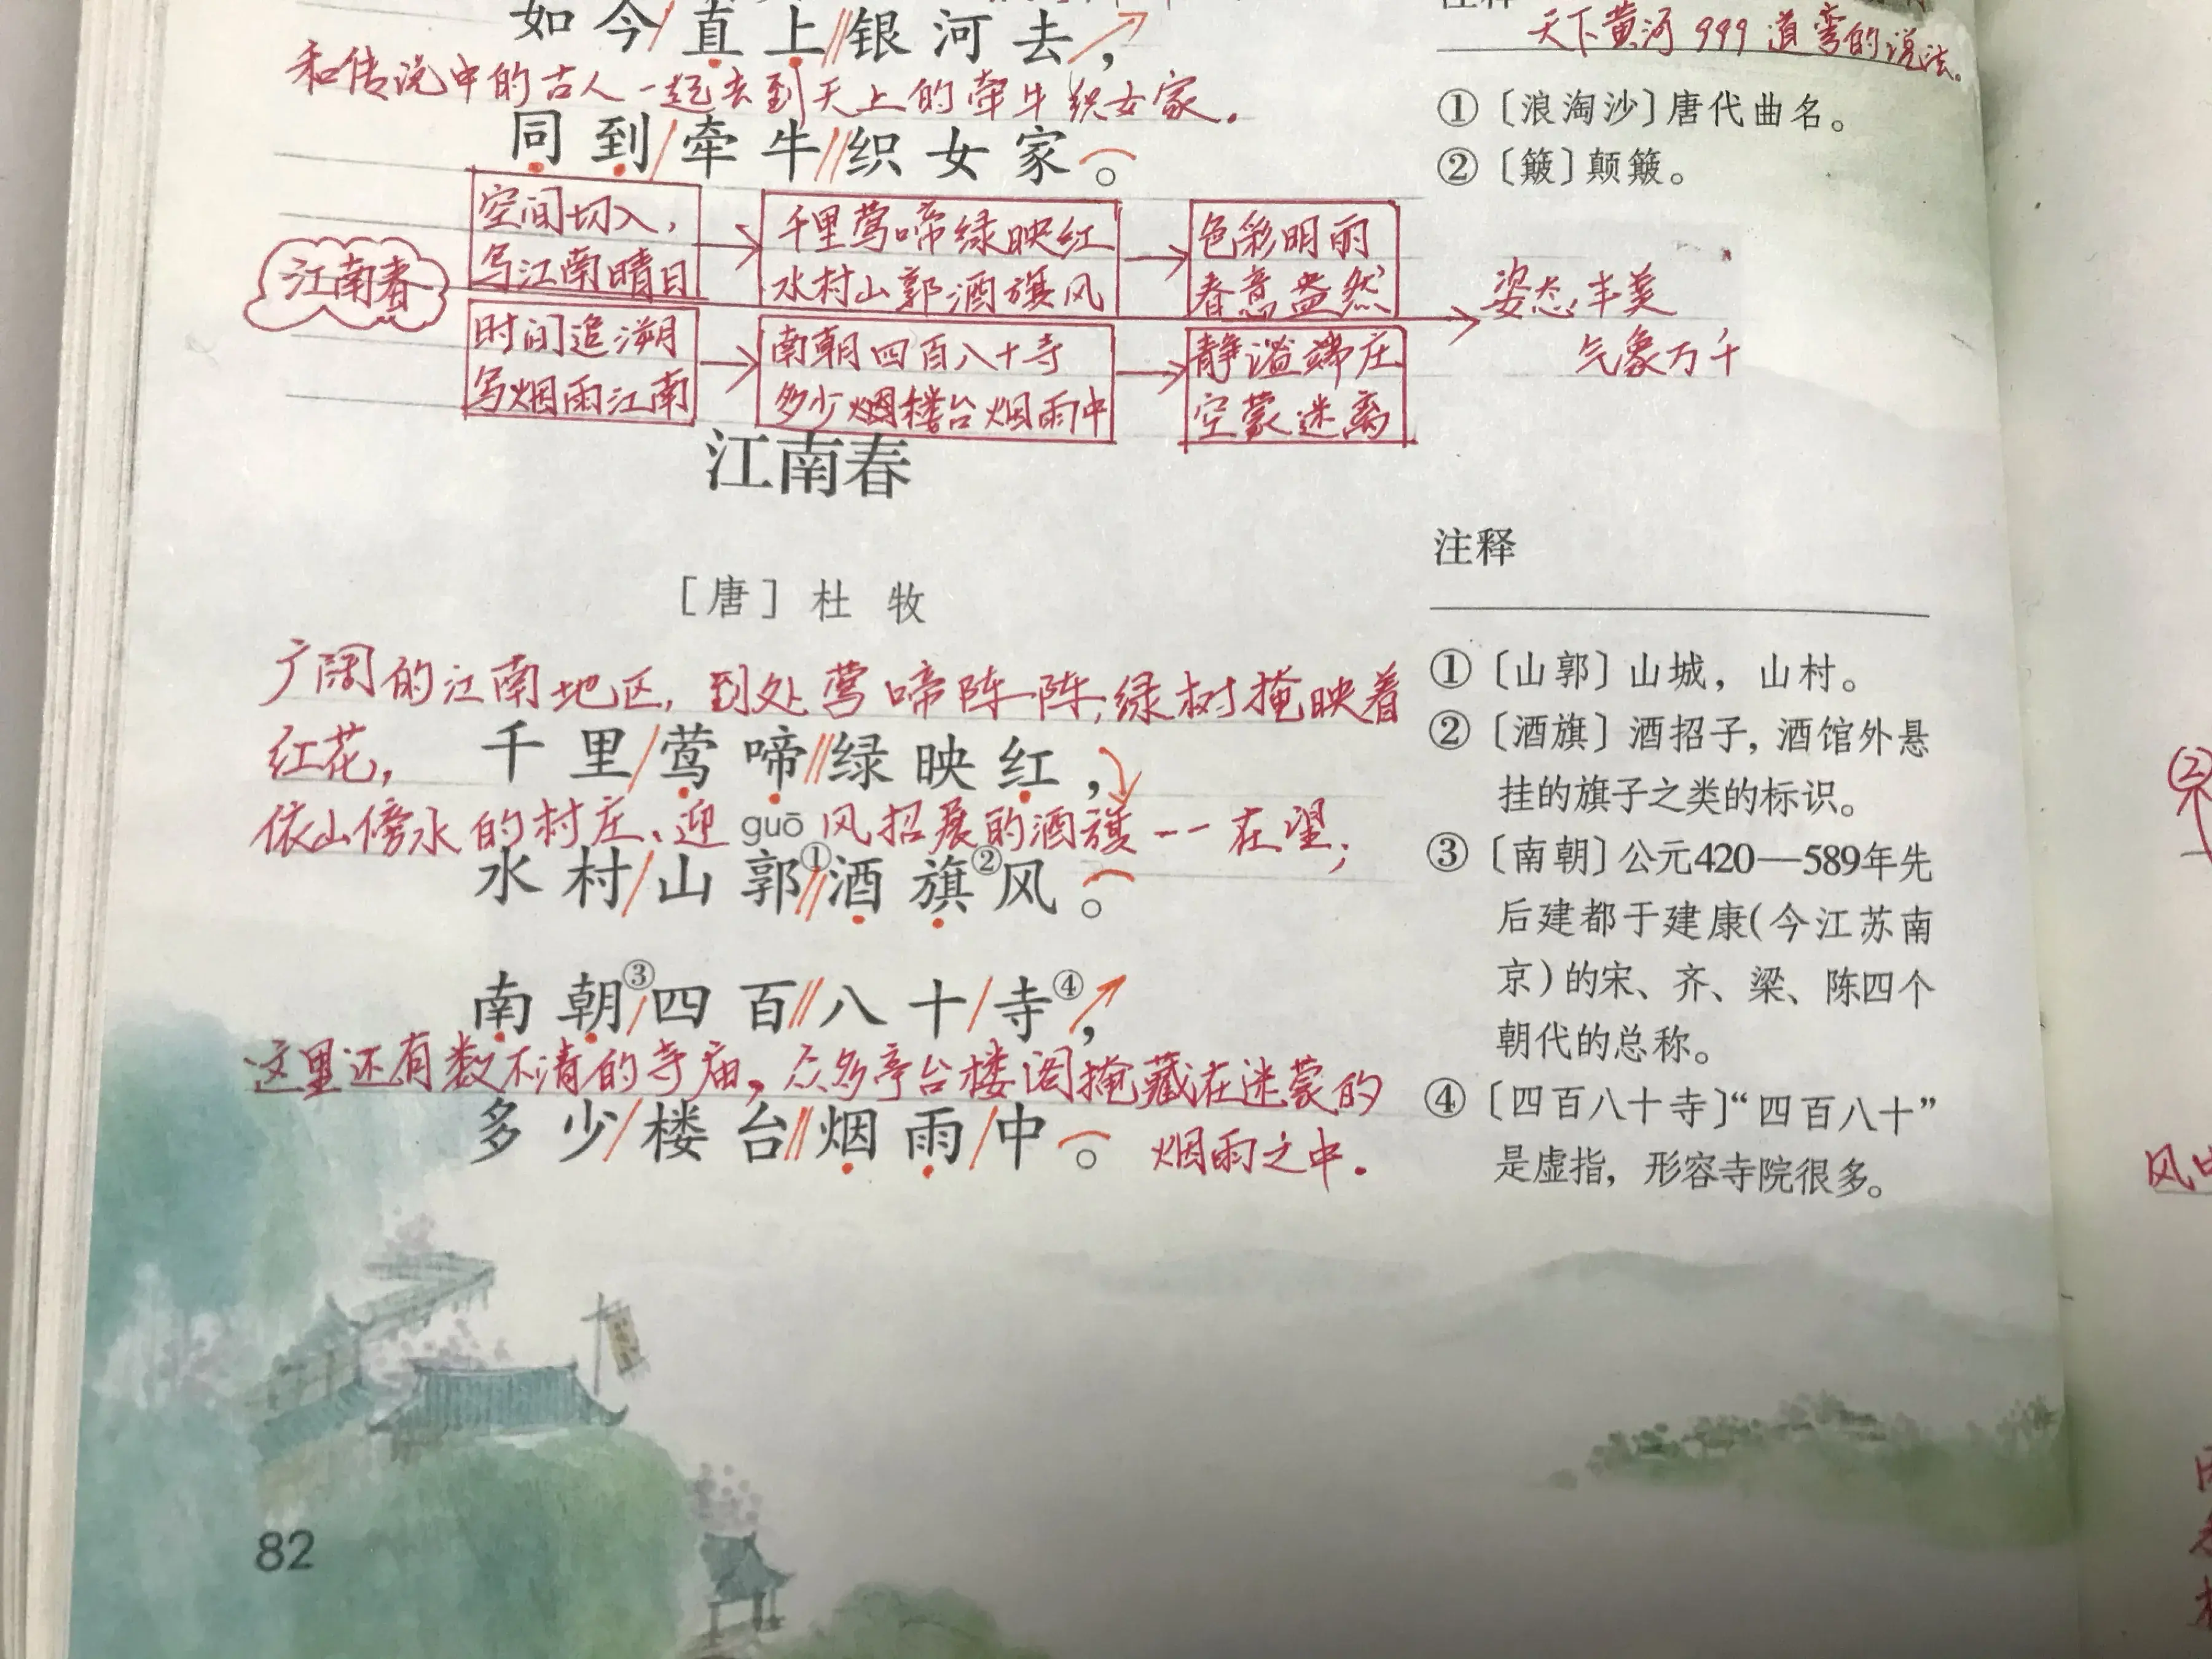 如今直上银河去，
和传说中的古人一起去到天上的牵牛织女家。
同到牵牛织女家。
天下黄河999道弯的说法。
①〔浪淘沙〕唐代曲名。
②〔簸〕颠簸。
江南春
空间切入，
写江南晴日
千里莺啼绿映红
水村山郭酒旗风
色彩明丽
春意盎然
时间追溯
写烟雨江南
南朝四百八十寺
多少楼台烟雨中
静谧端庄
空蒙迷离
姿态丰美
气象万千
江南春
［唐］杜牧
广阔的江南地区，到处莺啼阵阵，绿树掩映着
红花，
千里莺啼绿映红，
依山傍水的村庄、迎风招展的酒旗一一在望；
guō
水村山郭①酒旗②风。
南朝③四百八十寺④，
这里还有数不清的寺庙，众多亭台楼阁掩藏在迷蒙的
多少楼台烟雨中。
烟雨之中.
注释
①〔山郭〕山城，山村。
②〔酒旗〕酒招子，酒馆外悬
挂的旗子之类的标识。
③〔南朝〕公元420—589年先
后建都于建康(今江苏南
京)的宋、齐、梁、陈四个
朝代的总称。
④〔四百八十寺〕“四百八十”
是虚指，形容寺院很多。
82
②